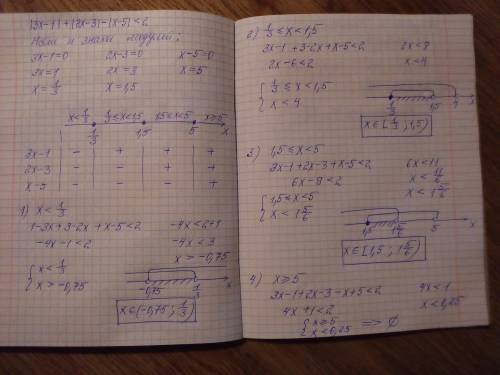 |3x-1|+|2x-3|-|x-5|<2
Нули и знаки модулей:
3x-1=0 2x-3=0 x-5=0
3x=1 2x=3 x=5
x=1/3 x=1,5
x<1/3 1/3≤x<1,5 1,5≤x<5 x≥5
1/3 1,5 5 x
3x-1 - + + +
2x-3 - - + +
x-5 - - - +
1) x<1/3
1-3x+3-2x+x-5<2 -4x<2+1
-4x-1<2 -4x<3
x>-0,75
{ x<1/3
x>-0,75
-0,75 1/3 x
x∈(-0,75; 1/3)
2) 1/3≤x<1,5
3x-1+3-2x+x-5<2 2x<8
2x-6<2 x<4
{ 1/3≤x<1,5
x<4
1/3 1,5 4 x
x∈[1/3; 1,5)
3) 1,5≤x<5
3x-1+2x-3+x-5<2 6x<11
6x-9<2 x<11/6
{ 1,5≤x<5 x<1 5/6
x<1 5/6
1,5 1 5/6 5 x
x∈[1,5; 1 5/6)
4) x≥5
3x-1+2x-3-x+5<2 4x<1
4x+1<2 x<0,25
{ x≥5
x<0,25 => ∅